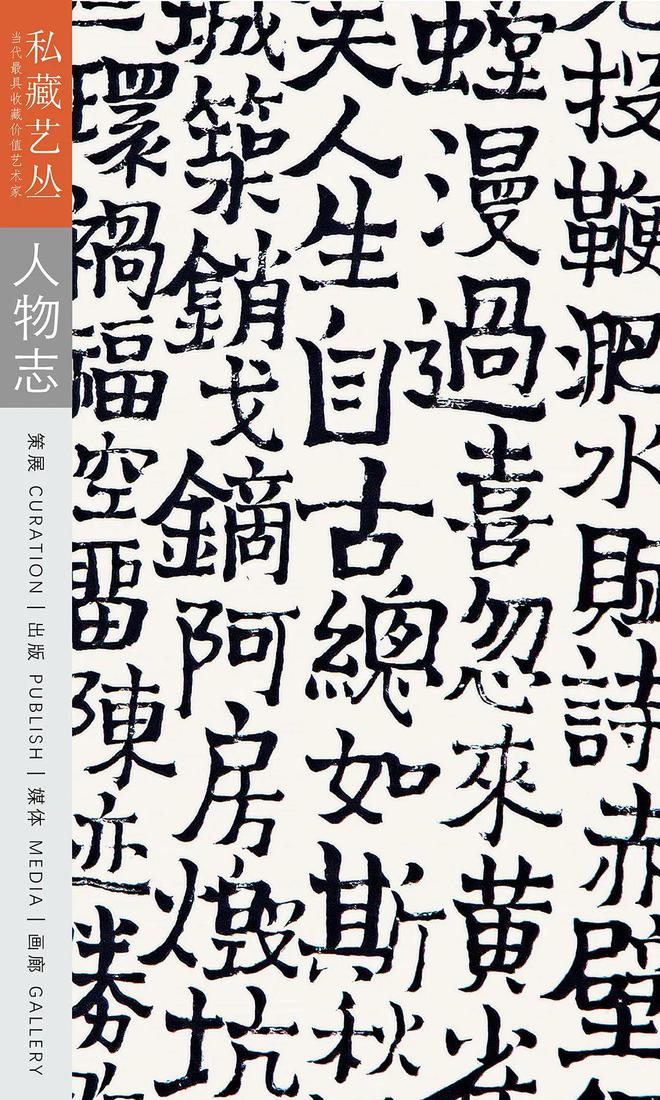 私藏艺丛
当代最具收藏价值艺术家
人物志
策展 CURATION | 出版 PUBLISH | 媒体 MEDIA | 画廊 GALLERY
投鞭淝水賦詩赤壁
螳漫過喜忽來黄雀
天人生自古總如斯秋
城築銷戈鏑阿房燬坑
環禍福空留陳迹勝